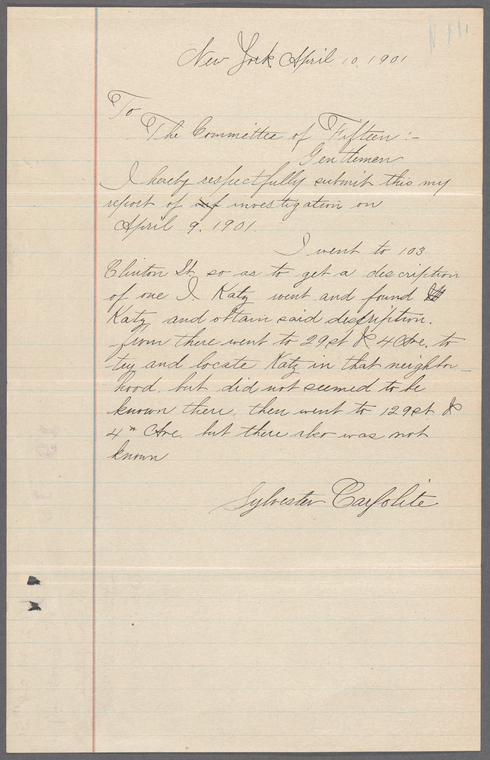 New York April 10, 1901
To
The Committee of Fifteen :-
Gentlemen
I hereby respectfully submit this my
report of investigation on
April 9. 1901.
I went to 103
Clinton St. so as to get a description
of one I Katz went and found
Katz, and obtain said description.
from there went to 29 st & 4 Ave. to
try and locate Katz in that neighbor
hood. but did not seemed to be
known there, then went to 129 st &
4th Ave. but there also was not
known
Sylvester